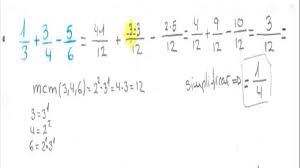 1/3 + 3/4 - 5/6 = 4·1/12 + 3·3/12 - 2·5/12 = 4/12 + 9/12 - 10/12 = 3/12 =
mcm(3,4,6) = 2²·3¹ = 4·3 = 12
simplificar => = 1/4
3 = 3¹
4 = 2²
6 = 2¹·3¹